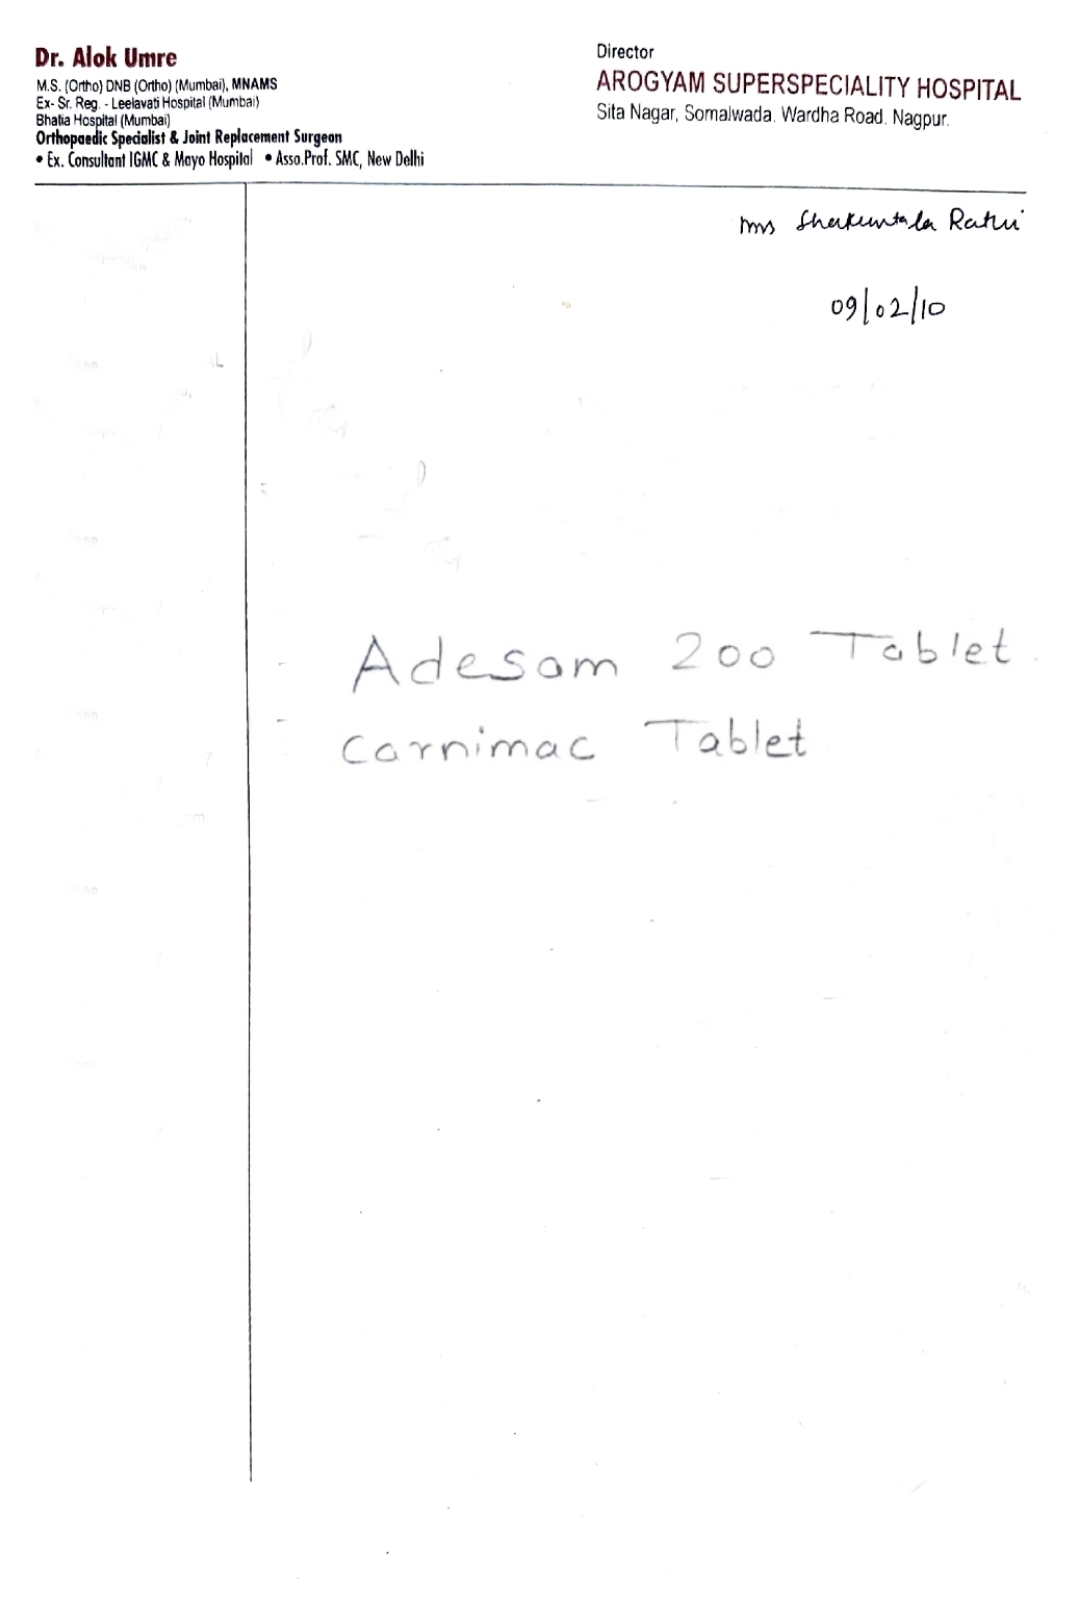 Dr. Alok Umre
M.S. (Ortho) DNB (Ortho) (Mumbai), MNAMS
Ex- Sr. Reg. - Leelavati Hospital (Mumbai)
Bhatia Hospital (Mumbai)
Orthopaedic Specialist & Joint Replacement Surgeon
• Ex. Consultant IGMC & Mayo Hospital • Asso.Prof. SMC, New Delhi
Director
AROGYAM SUPERSPECIALITY HOSPITAL
Sita Nagar, Somalwada. Wardha Road. Nagpur.
Mrs Shakuntala Rathi
09/02/10
- Adesam 200 Tablet
- Carnimac Tablet